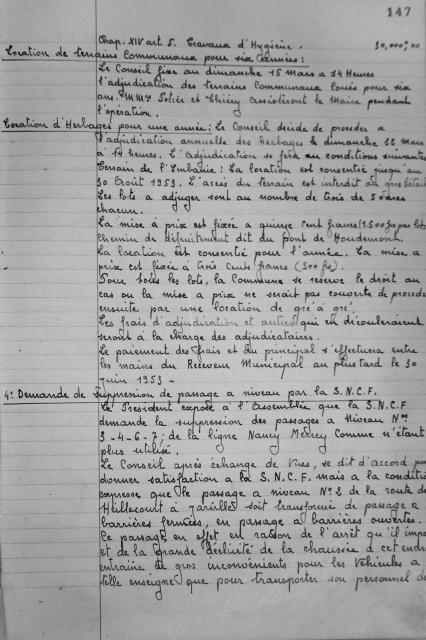 147
Chap. XIV art 5. Travaux d'Hygiène. 30,000,00
Location de terrains Communaux pour six années:
Le Conseil fixe au dimanche 15 Mars à 14 Heures
l'adjudication des terrains Communaux loués pour six
ans. MMrs Potier et Thiéry assisteront le Maire pendant
l'opération.
Location d'Herbages pour une année: Le Conseil décide de procéder à
l'adjudication annuelle des herbages le dimanche 22 Mars
à 14 heures. L'adjudication se fera au conditions suivantes
Terrain de l'Embanie: La location est consentie jusqu'au
30 Août 1953. L'accès du terrain est interdit au gros bétail
Les lots à adjuger sont au nombre de trois de 5 ares
chacun.
La mise à prix est fixée à quinze cent francs (1.500 frs par lot)
Chemin de défruitement dit du Pont de Houdemont.
La location est consentie pour l'année. La mise à
prix est fixée à trois cents francs (300 frs).
Pour tous les lots, la Commune se réserve le droit au
cas ou la mise à prix ne serait pas couverte de procéder
ensuite par une location de gré à gré.
Les frais d'adjudication et autres qui en découleraient
seront à la charge des adjudicataires.
Le paiement des frais et du principal s'effectuera entre
les mains du Receveur Municipal au plus tard le 30
juin 1953 -
4° Demande de suppression de passage à niveau par la S.N.C.F.
Le Président expose à l'Assemblée que la S.N.C.F
demande la suppression des passages à Niveau Nos
3-4-6-7; de la ligne Nancy Merrey Comme n'étant
plus utilisé.
Le Conseil après échange de Vues, se dit d'accord pour
donner satisfaction à la S.N.C.F. mais à la condition
expresse que le passage à niveau No 2 de la route de
Heillecourt à Jarville soit transformé de passage à
barrières fermées, en passage à barrières ouvertes.
Ce passage en effet en raison de l'arrêt qu'il impose
et de la grande déclivité de la chaussée à cet endroit
entraine de gros inconvénients pour les Véhicules a
telle enseigne que pour transporter son personnel de